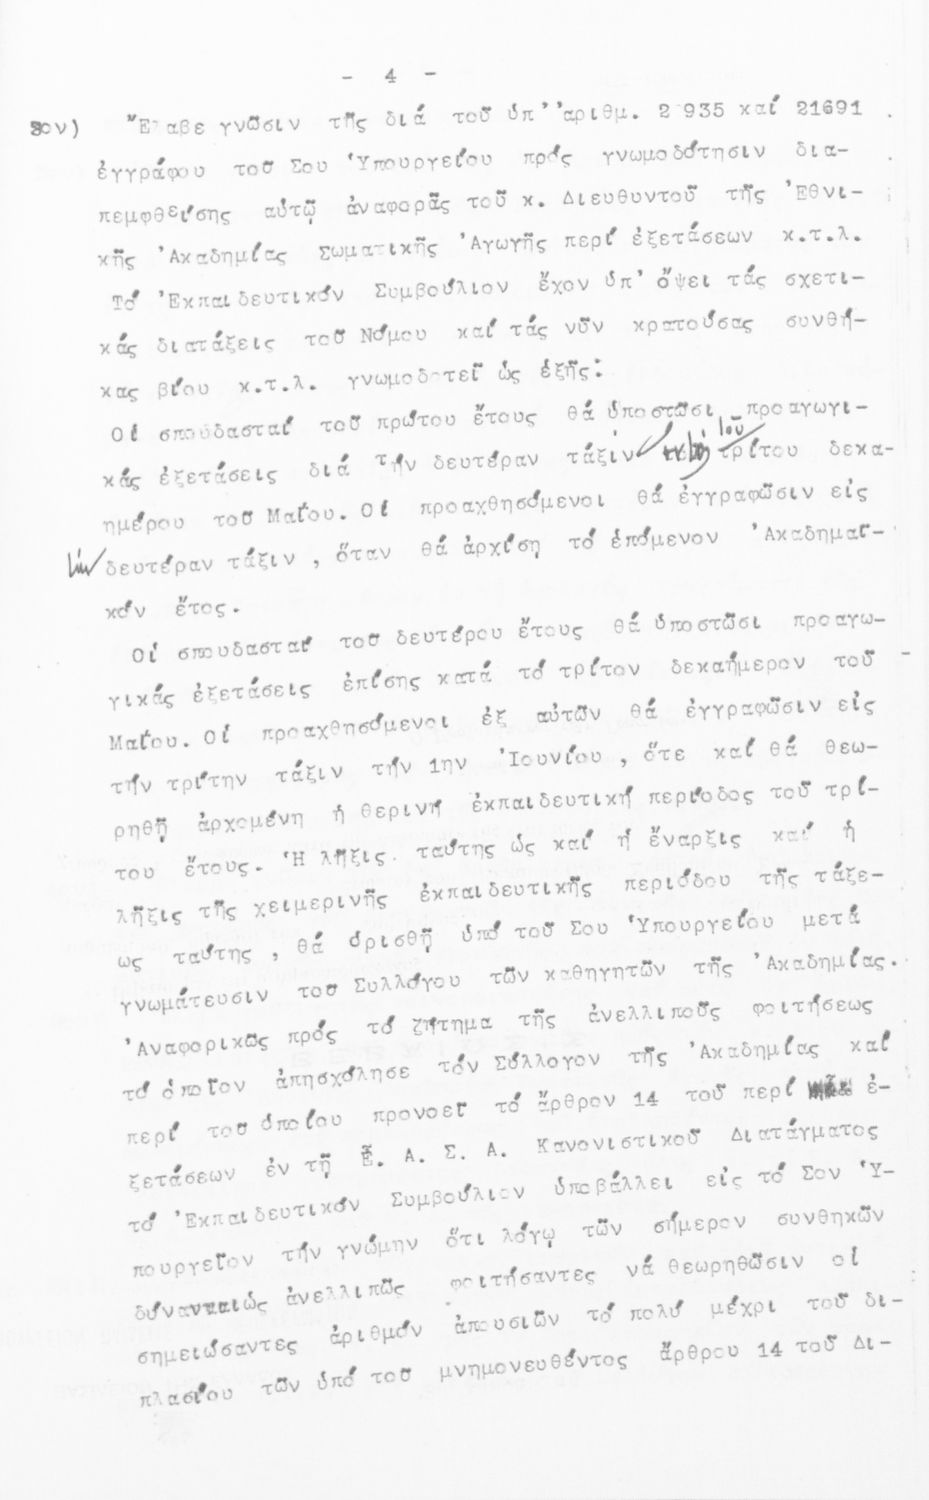 - 4 -
3ον) Ἔλαβε γνῶσιν τῆς διά τοῦ ὑπ' ἀριθμ. 2 935 καί 21691
ἐγγράφου τοῦ Σου Ὑπουργείου πρός γνωμοδότησιν δια-
πεμφθείσης αὐτῷ ἀναφορᾶς τοῦ κ. Διευθυντοῦ τῆς Ἐθνι-
κῆς Ἀκαδημίας Σωματικῆς Ἀγωγῆς περί ἐξετάσεων κ.τ.λ.
Τό Ἐκπαιδευτικόν Συμβούλιον ἔχον ὑπ' ὄψει τάς σχετι-
κάς διατάξεις τοῦ Νόμου καί τάς νῦν κρατούσας συνθή-
κας βίου κ.τ.λ. γνωμοδοτεῖ ὡς ἑξῆς:
Οἱ σπουδασταί τοῦ πρώτου ἔτους θά ὑποστῶσι προαγωγι-
κάς ἐξετάσεις διά τήν δευτέραν τάξιν τοῦ τρίτου δεκα-
ημέρου τοῦ Μαΐου. Οἱ προαχθησόμενοι θά ἐγγραφῶσιν εἰς
τήν δευτέραν τάξιν, ὅταν θά ἀρχίσῃ τό ἑπόμενον Ἀκαδημαϊ-
κόν ἔτος.
Οἱ σπουδασταί τοῦ δευτέρου ἔτους θά ὑποστῶσι προαγω-
γικάς ἐξετάσεις ἐπίσης κατά τό τρίτον δεκαήμερον τοῦ
Μαΐου. Οἱ προαχθησόμενοι ἐξ αὐτῶν θά ἐγγραφῶσιν εἰς
τήν τρίτην τάξιν τήν 1ην Ἰουνίου, ὅτε καί θά θεω-
ρηθῇ ἀρχομένη ἡ θερινή ἐκπαιδευτική περίοδος τοῦ τρί-
του ἔτους. Ἡ λῆξις ταύτης ὡς καί ἡ ἔναρξις καί ἡ
λῆξις τῆς χειμερινῆς ἐκπαιδευτικῆς περιόδου τῆς τάξε-
ως ταύτης, θά ὁρισθῇ ὑπό τοῦ Σου Ὑπουργείου μετά
γνωμάτευσιν τοῦ Συλλόγου τῶν καθηγητῶν τῆς Ἀκαδημίας.
Ἀναφορικῶς πρός τό ζήτημα τῆς ἀνελλιποῦς φοιτήσεως
τό ὁποῖον ἀπησχόλησε τόν Σύλλογον τῆς Ἀκαδημίας καί
περί τοῦ ὁποίου προνοεῖ τό ἄρθρον 14 τοῦ περί ἐ-
ξετάσεων ἐν τῇ Ε. Α. Σ. Α. Κανονιστικοῦ Διατάγματος
τό Ἐκπαιδευτικόν Συμβούλιον ὑποβάλλει εἰς τό Σον Ὑ-
πουργεῖον τήν γνώμην ὅτι λόγῳ τῶν σήμερον συνθηκῶν
δύνανται ὡς ἀνελλιπῶς φοιτήσαντες νά θεωρηθῶσιν οἱ
σημειώσαντες ἀριθμόν ἀπουσιῶν τό πολύ μέχρι τοῦ δι-
πλασίου τῶν ὑπό τοῦ μνημονευθέντος ἄρθρου 14 τοῦ Δι-